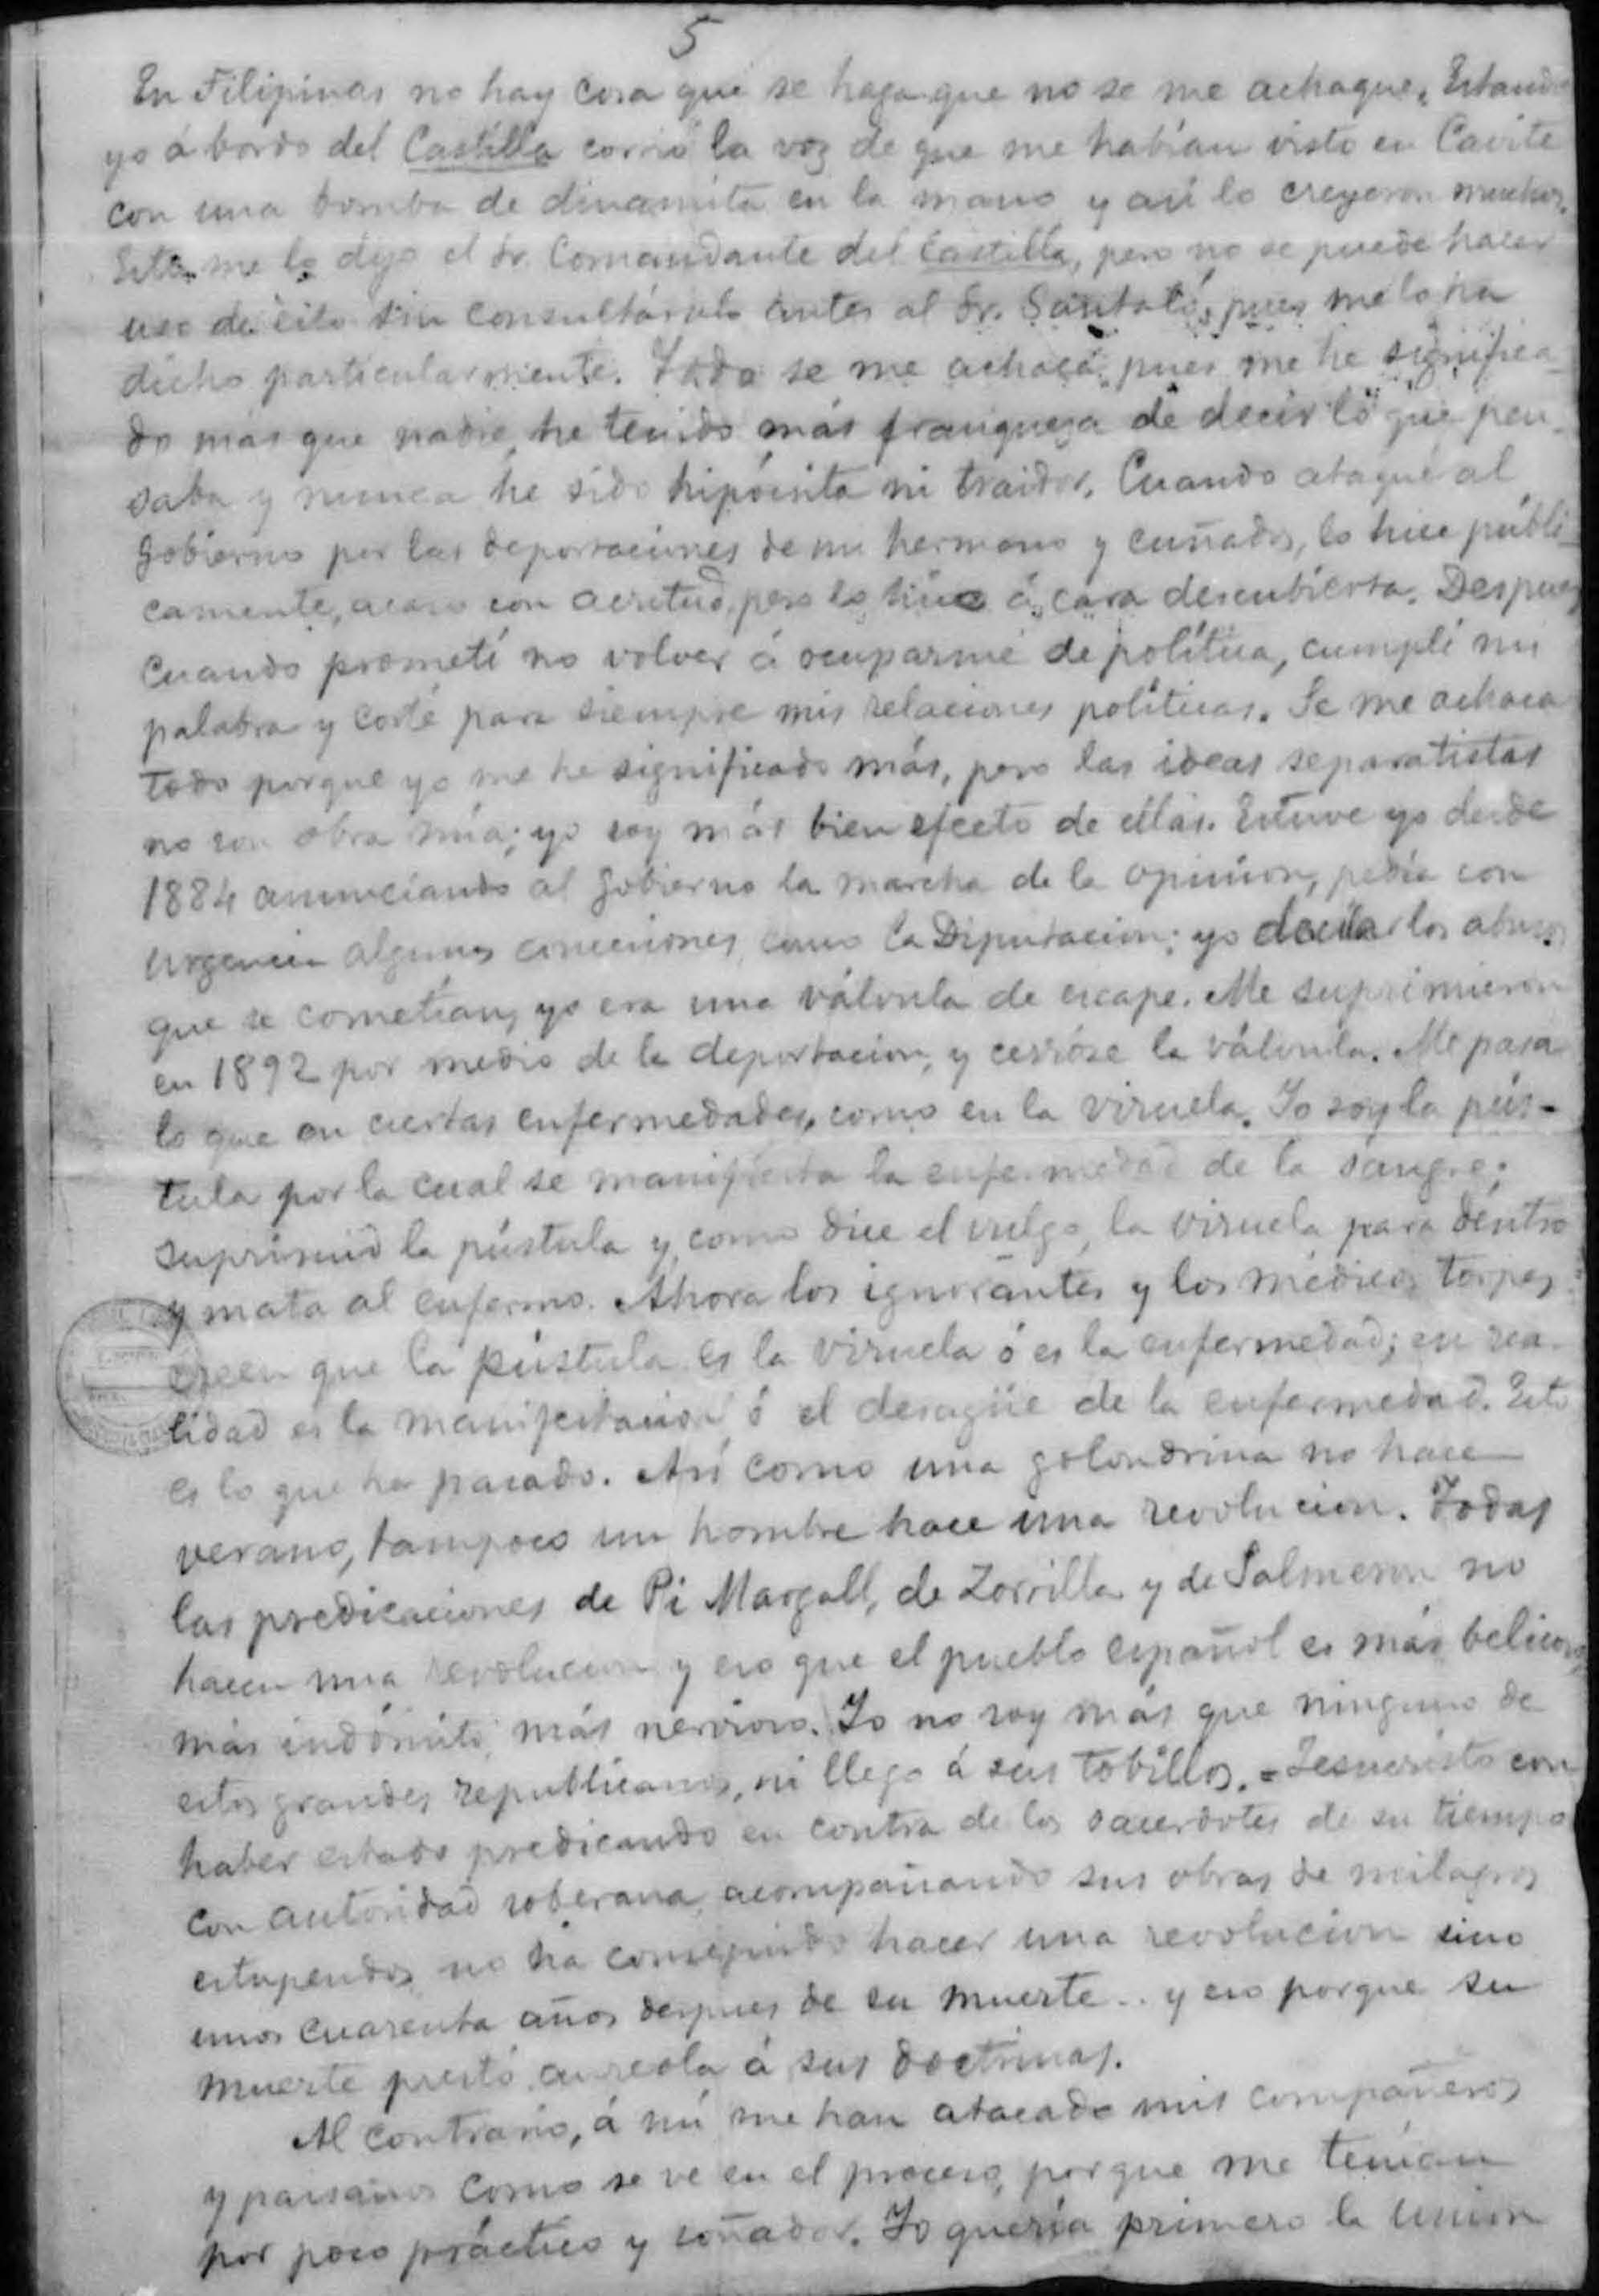 5
En Filipinas no hay cosa que se haga que no se me achaque. Estando
yo á bordo del Castilla corrió la voz de que me habían visto en Cavite
con una bomba de dinamita en la mano y así lo creyeron muchos.
Esto me lo dijo el Sr. Comandante del Castilla, pero no se puede hacer
uso de esto sin consultárselo antes al Sr. Santaló, pues me lo ha
dicho particularmente. Todo se me achaca, pues me he significa-
do más que nadie, he tenido más franqueza de decir lo que pen-
saba y nunca he sido hipócrita ni traidor. Cuando ataqué al
Gobierno por las deportaciones de mi hermano y cuñados, lo hice públi-
camente, acaso con acritud, pero lo hice á cara descubierta. Despues
cuando prometí no volver á ocuparme de política, cumplí mi
palabra y corté para siempre mis relaciones políticas. Se me achaca
todo porque yo me he significado más, pero las ideas separatistas
no son obra mía; yo soy más bien efecto de ellas. Estuve yo desde
1884 anunciando al Gobierno la marcha de la opinion, pedía con
urgencia algunas concesiones, como la Diputacion; yo decía los abusos
que se cometían, yo era una válvula de escape. Me suprimieron
en 1892 por medio de la deportacion, y cerróse la válvula. Me pasa
lo que en ciertas enfermedades, como en la viruela. Yo soy la pús-
tula por la cual se manifiesta la enfermedad de la sangre;
suprimid la pústula y, como dice el vulgo, la viruela para dentro
y mata al enfermo. Ahora los ignorantes y los médicos torpes
creen que la pústula es la viruela ó es la enfermedad; en rea-
lidad es la manifestacion ó el desagüe de la enfermedad. Esto
es lo que ha pasado. Así como una golondrina no hace
verano, tampoco un hombre hace una revolucion. Todas
las predicaciones de Pi Margall, de Zorrilla y de Salmeron no
hacen una revolucion y eso que el pueblo español es más belicoso,
más indómito, más nervioso. Yo no soy más que ninguno de
estos grandes republicanos, ni llego á sus tobillos. = Jesucristo con
haber estado predicando en contra de los sacerdotes de su tiempo
con autoridad soberana, acompañando sus obras de milagros
estupendos no ha conseguido hacer una revolucion sino
unos cuarenta años despues de su muerte... y eso porque su
muerte prestó aureola á sus doctrinas.
Al contrario, á mí me han atacado mis compañeros
y paisanos como se ve en el proceso, porque me tenían
por poco práctico y soñador. Yo quería primero la union